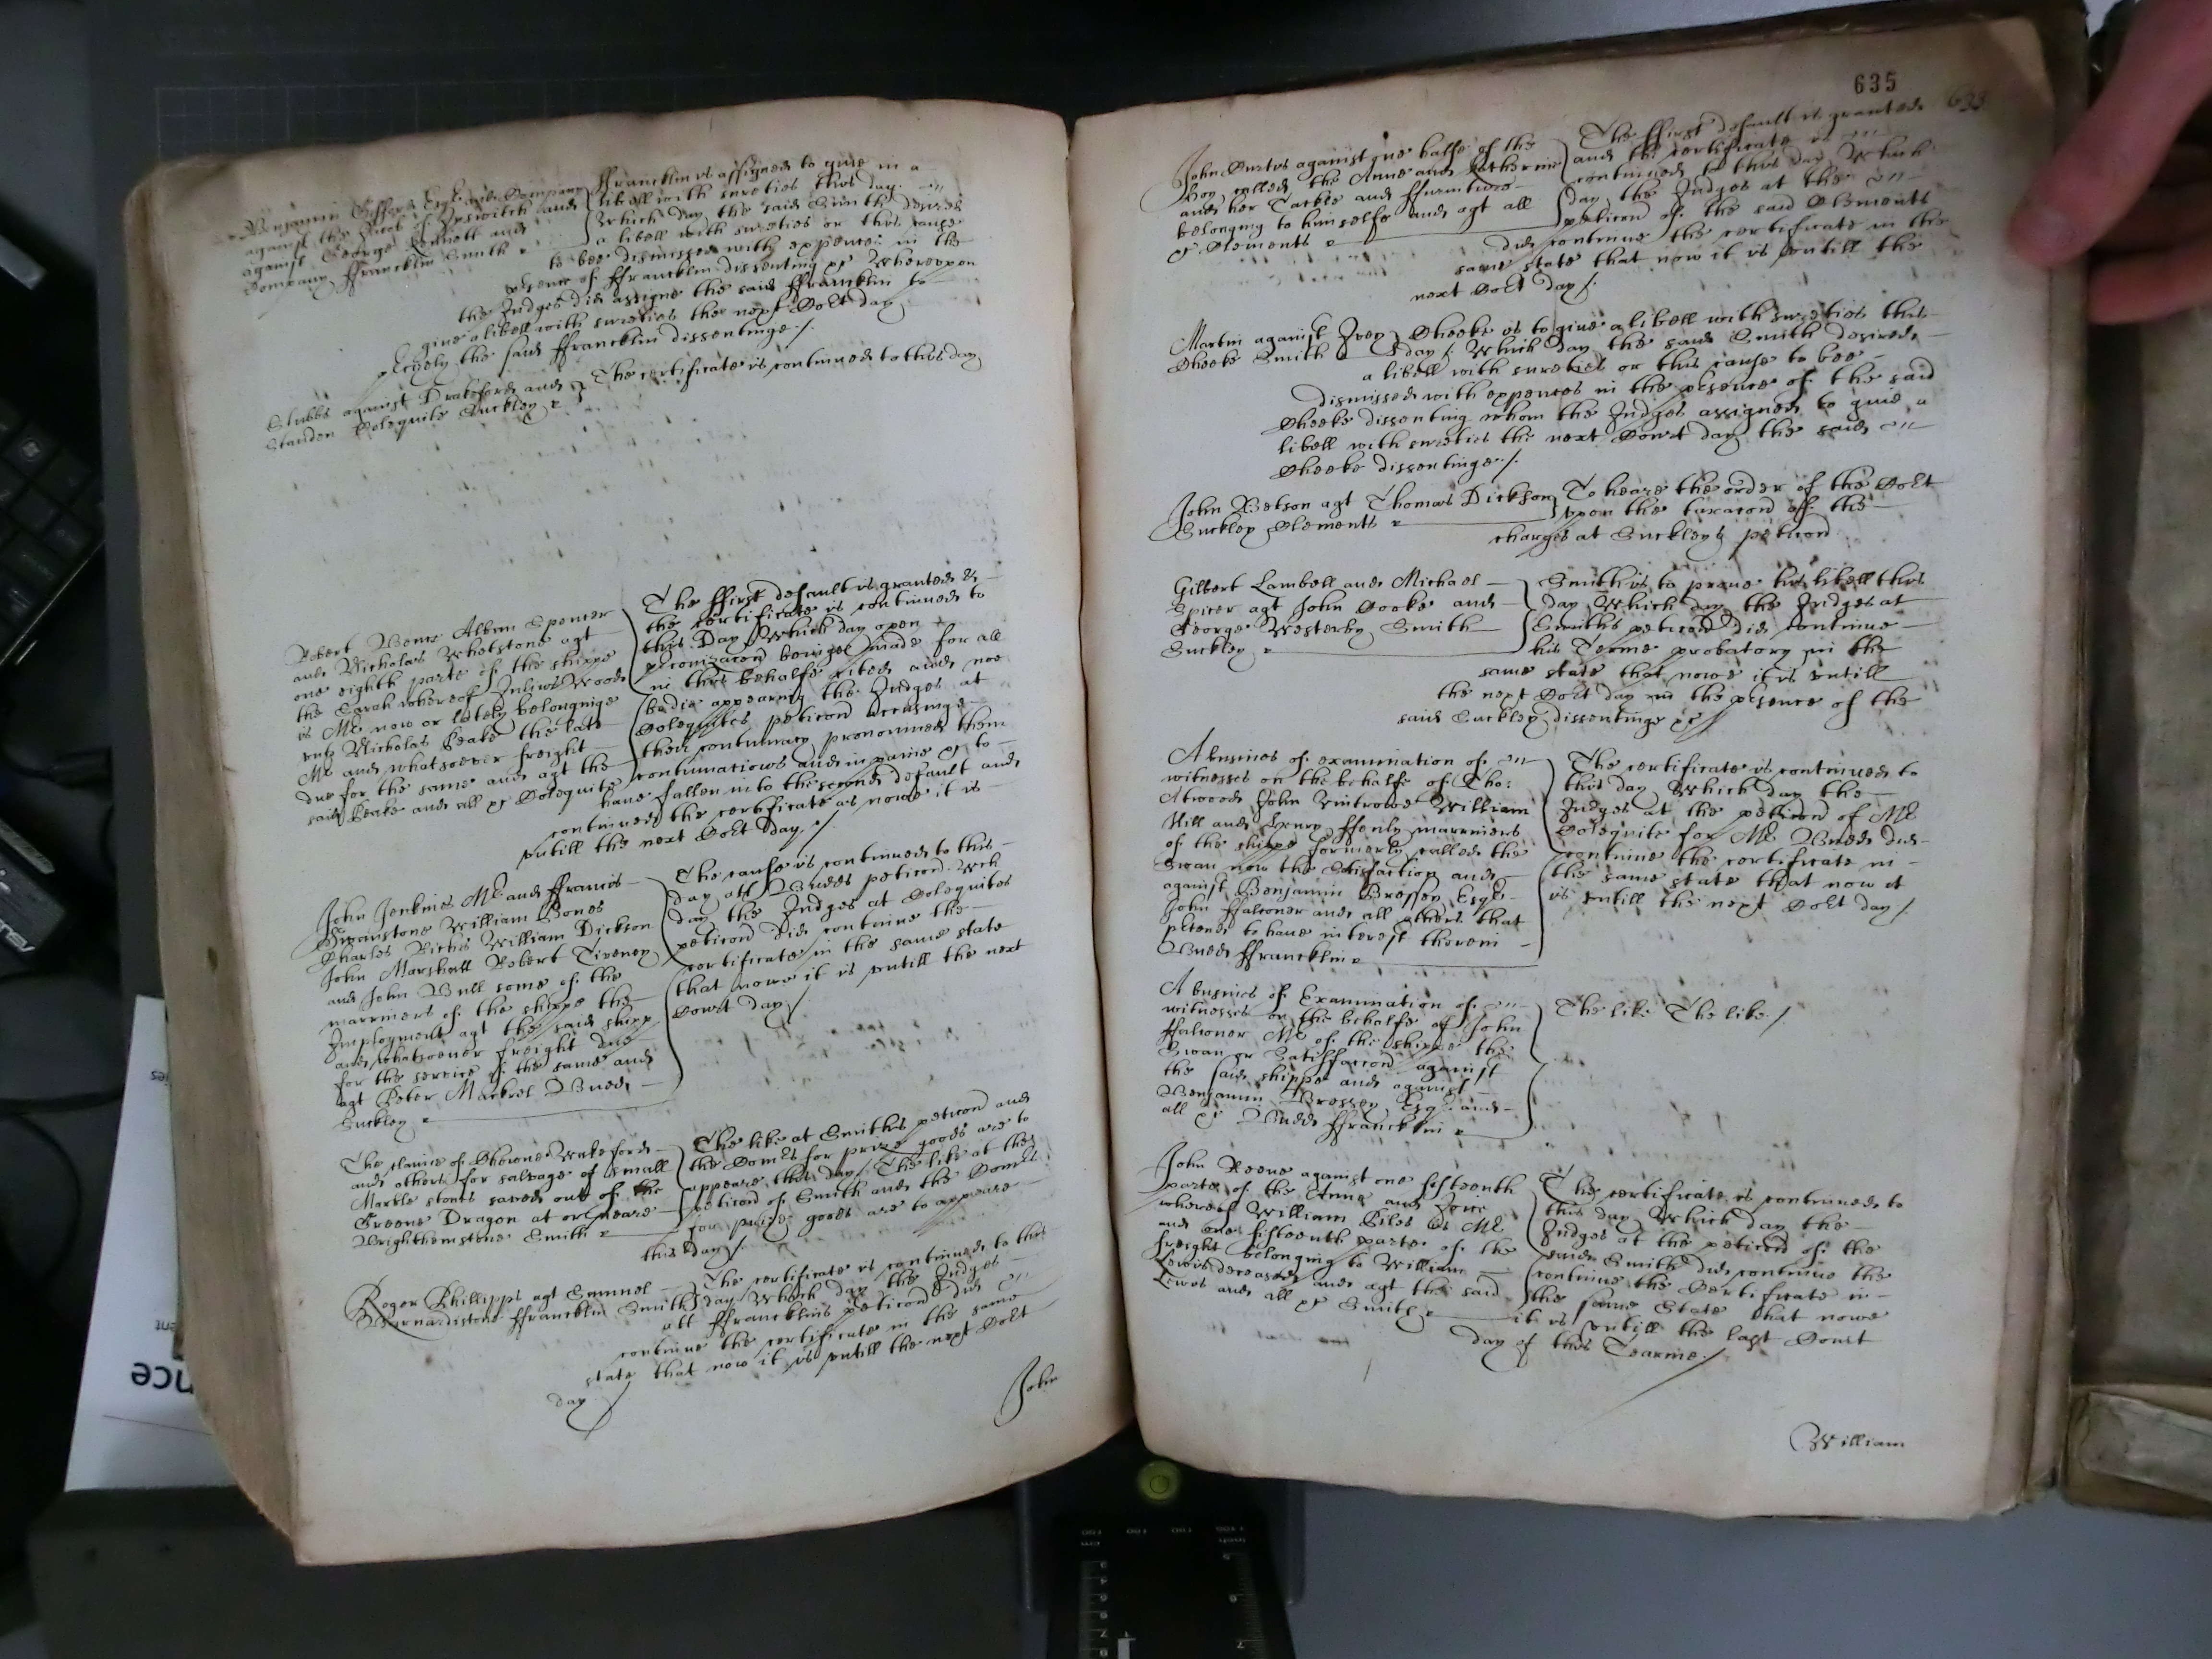 Benjamin Gifford Esqr and Company
against the Jices of Ipswitch and
against George Kennett and
Company Francklin Smith
ffrancklin is assigned to give in a
libell with sureties this day.
Which day the said Smith desired
a libell with sureties or this cause
to bee dismissed with expences in the
presence of ffrancklin dissenting &c Whereupon
the Judges did assigne the said ffrancklin to
give a libell with sureties the next Cort day
the said ffrancklin dissentinge /.
Stubbs against Drakeford and
Standen Colequite Suckley
The certificate is continued to this day
Robert Bence Albin Spencer
and Nicholas Whetstone agt
one eighth parte of the shippe
the Sarah whereof Julius Wood
is Mr now or lately belonginge
unto Nicholas Beake the late
Mr and whatsoever freight
due for the same and agt the
said Beake and all &c Colequite
The ffirst default is granted &
the certificate is continued to
this Day Which day open
preconizacon beinge made for all
in this behalfe cited and noe
bodie appearing the Judges at
Colequites peticon accusinge
their contumacy pronounced them
contumatious and in paine &c to
have fallen into the second default and
continued the certificate as nowe it is
untill the next Cort day /.
John Jenkins Mr and ffrancis
Swanstone William Bones
Charles Richis William Dickson
John Marshall Robert Tiveney
and John Bull some of the
marriners of the shippe the
Imployment agt the said shipp
and whatsoever freight due
for the service of the same and
agt Peter Markrel Budd
Suckley
The cause is continued to this
day att Budds peticon. Wch
day the Judges at Colequites
peticon did continue the
certificate in the same state
that nowe it is untill the next
Court day /
The claime of Wakeford
and others for salvage of small
Marble stones saved out of the
Greene Dragon at or neare
Brighthemstone Smith
The like at Smiths peticon and
the Comrs for prize goods are to
appeare this day /. The like at the
peticon of Smith and the Comrs
for prize goods are to appeare
this day /.
Roger Phillipps agt Samuel
Barnardistone ffrancklin Smith
The certificate is continued to this
day Which day the Judges
att ffrancklins peticon did
continue the certificate in the same
state that now it is untill the next Cort
day /
John
635
635
John Curtis against one halfe of the
hoy called the Anne and Katherine
and her Tackle and ffurniture
belonging to himselfe and agt all
&c Clements
The ffirst default is granted
and the certificate is
continued to this day Which
day the Judges at the
peticon of the said Clements
did continue the certificate in the
same state that now it is untill the
next Cort day /.
Martin against Ivey
Cheeke Smith
Cheeke is to give a libell with sureties this
day /. Which day the said Smith desired
a libell with sureties or this cause to bee
dismissed with expences in the presence of the said
Cheeke dissenting whom the Judges assigned to give a
libell with sureties the next Court day the said
Cheeke dissentinge /.
John Betson agt Thomas Dickson
Suckley Clements
To heare the order of the Cort
upon the taxacon of the
charges at Suckleys peticon
Gilbert Lambell and Michael
Spicer agt John Cooke and
George Westerby Smith
Suckley
Smith is to prove his libell this
day Which day the Judges at
Smiths peticon did continue
his Terme probatory in the
same state that nowe it is untill
the next Cort day in the presence of the
said Suckley dissentinge &c /
A busines of examination of
witnesses on the behalfe of Tho:
Atwood John Wintrowe William
Hill and Henry ffenly marriners
of the shippe formerly called the
Swan now the Satisfaction and
against Benjamin Brossen Esqr
John ffalconer and all others that
ptend to have interest therein
Budd ffrancklin
The certificate is continued to
this day Which day the
Judges at the peticon of Mr
Colequite for Mr Budd did
continue the certificate in
the same state that now it
is untill the next Cort day /.
A busines of Examination of
witnesses on the behalfe of John
ffalconer Mr of the shippe the
Swan or Satisffaccon against
the said shippe and against
Benjamin Brossen Esqr and
all &c Budd ffrancklin
The like The like /.
John Keene against one fifteenth
parte of the Anne and Joice
whereof William Piles is Mr
and one fifteenth parte of the
freight belonging to William
Lewis deceased and agt the said
Lewis and all &c Smith
The certificate is continued to
this day Which day the
Judges at the peticon of the
said Smith did continue the
continue the Certificate in
the same State that nowe
it is untill the last Court
day of this Tearme /
William